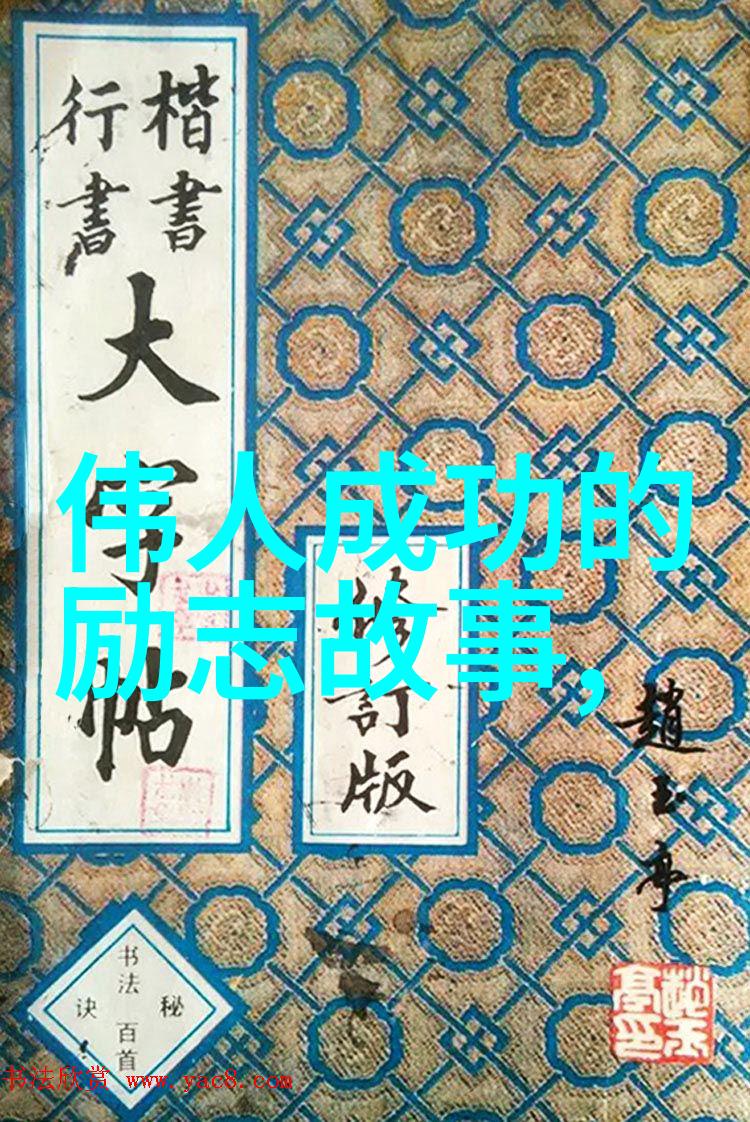 楷書
行書
大字帖
修訂版
伟人成功的
励志故事,
趙玉亭
书法百首
秘诀
书法欣赏 www.yac8.com